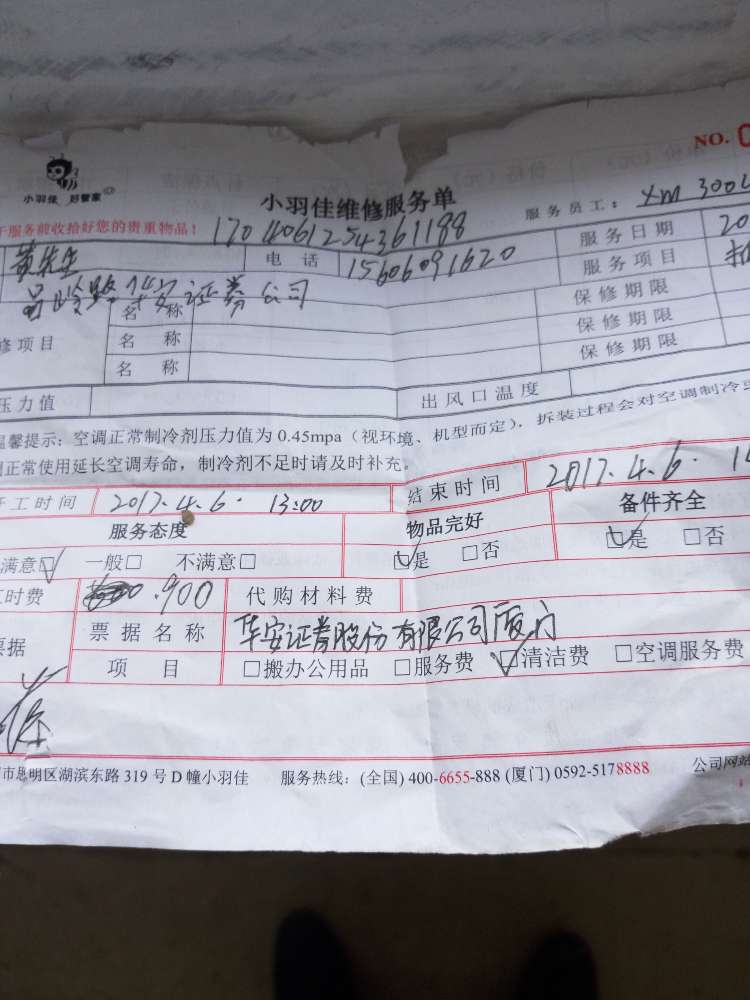 NO. 0
小羽佳 好管家
小羽佳维修服务单
服务员工：XM300
于服务前收拾好您的贵重物品！
1704061254361188
黄先生
电话
15606091620
服务日期
20
华安证券公司
服务项目
名称
保修期限
修项目
名称
保修期限
名称
保修期限
压力值
出风口温度
温馨提示：空调正常制冷剂压力值为 0.45mpa（视环境、机型而定），拆装过程会对空调制冷
正常使用延长空调寿命，制冷剂不足时请及时补充。
开工时间 2017.4.6. 13:00
结束时间 2017.4.6. 1
服务态度
物品完好
备件齐全
满意☑ 一般□ 不满意□
☑是 □否
☑是 □否
工时费 900 代购材料费
票据
票据名称 华安证券股份有限公司厦门
项目 □搬办公用品 □服务费 ☑清洁费 □空调服务费
市思明区湖滨东路 319 号 D 幢小羽佳 服务热线：(全国) 400-6655-888 (厦门) 0592-5178888 公司网站